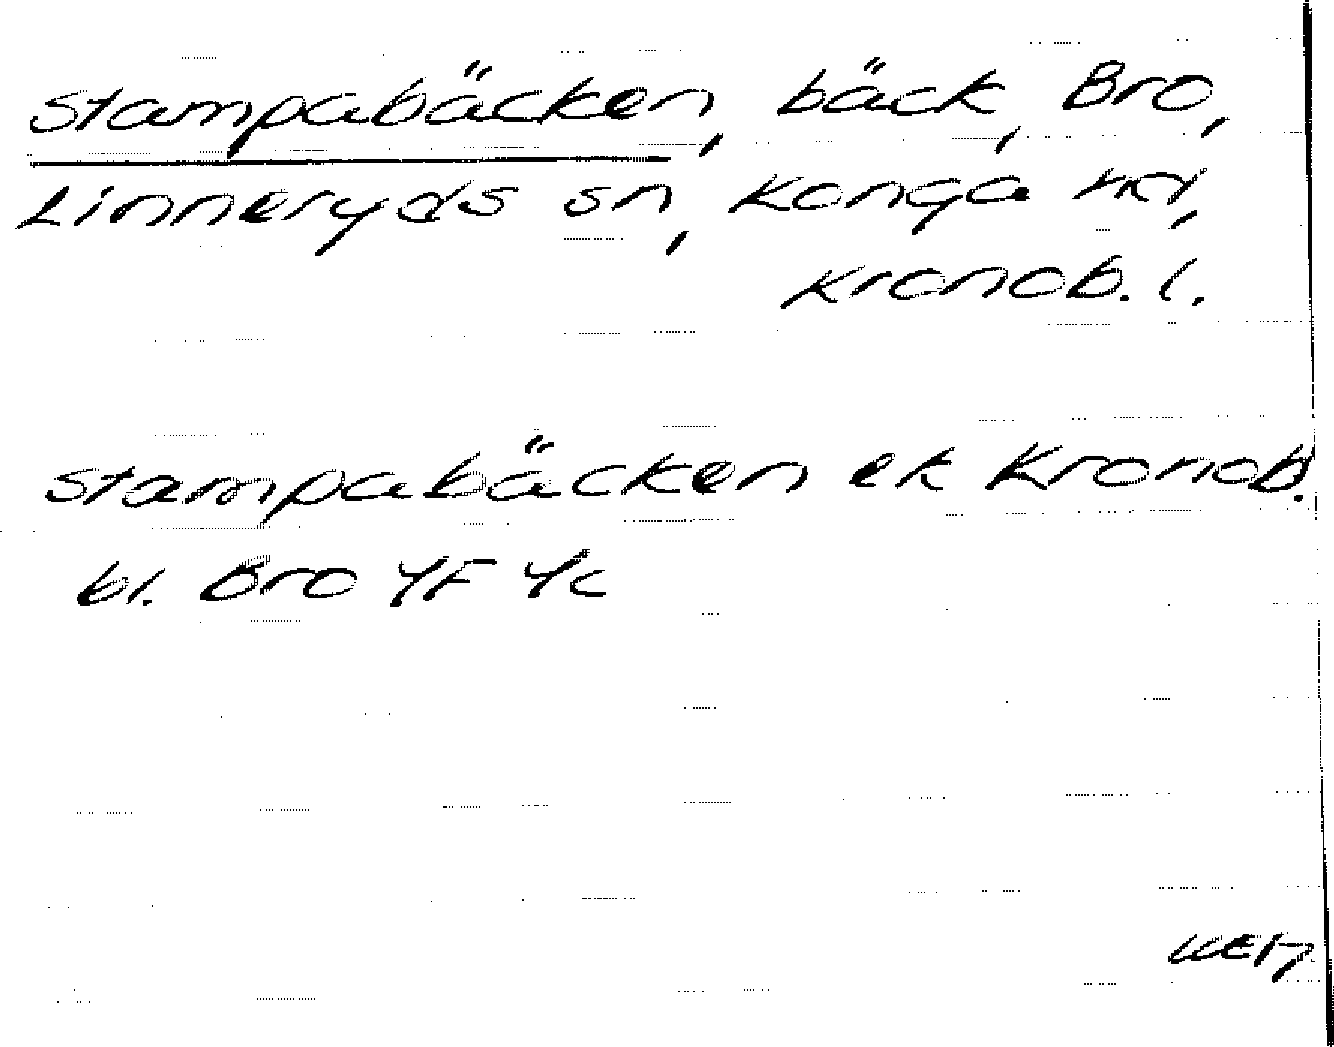 Stampabäcken, bäck, Bro,
Linneryds sn, Konga hd,
Kronob. l.
Stampabäcken ek Kronob.
bl. Bro 4F 4c